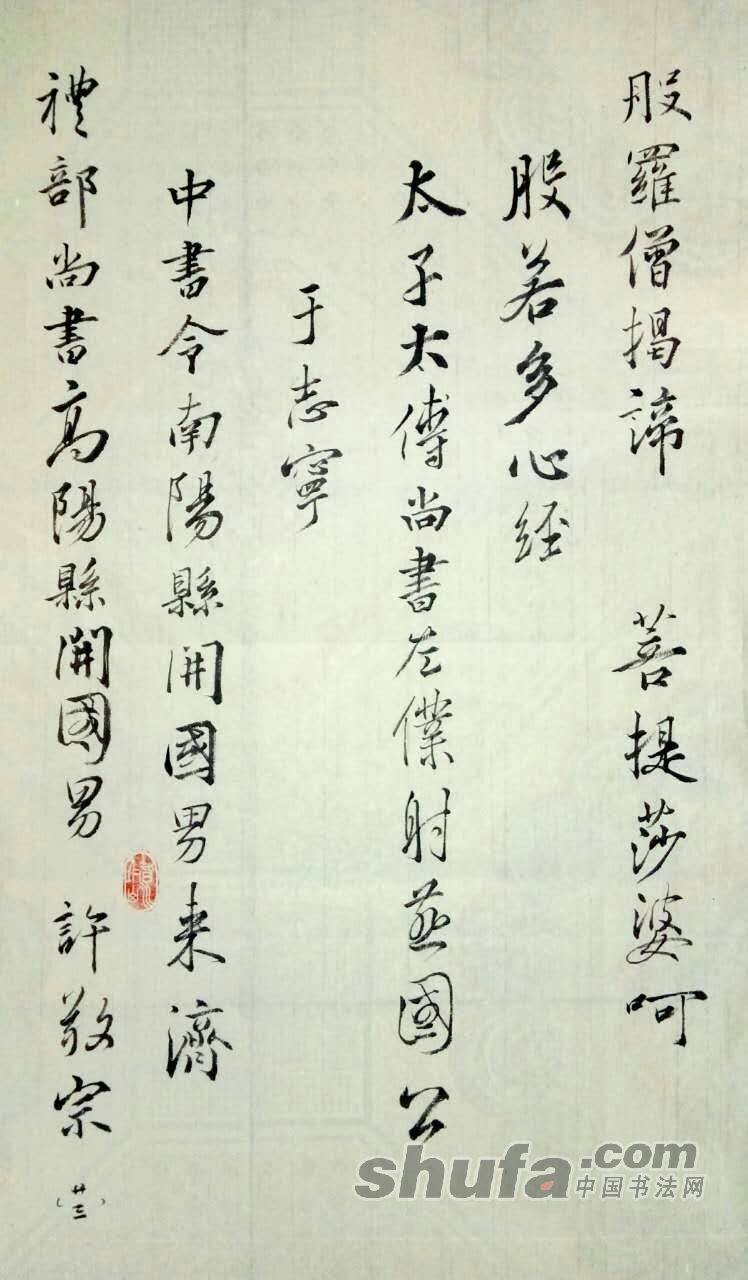 般羅僧揭諦 菩提莎婆呵
般若多心經
太子太傅尚書左僕射燕國公
于志寧
中書令南陽縣開國男来濟
禮部尚書高陽縣開國男 許敬宗
(廿三)
shufa.com
中国书法网